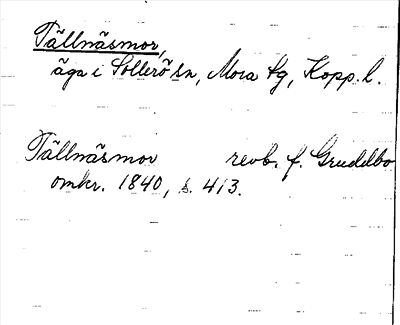 Tällnäsmor,
äga i Sollerö sn, Mora tg, Kopp. l.
Tällnäsmor revb. f. Gruddbo
omkr. 1840, s. 413.